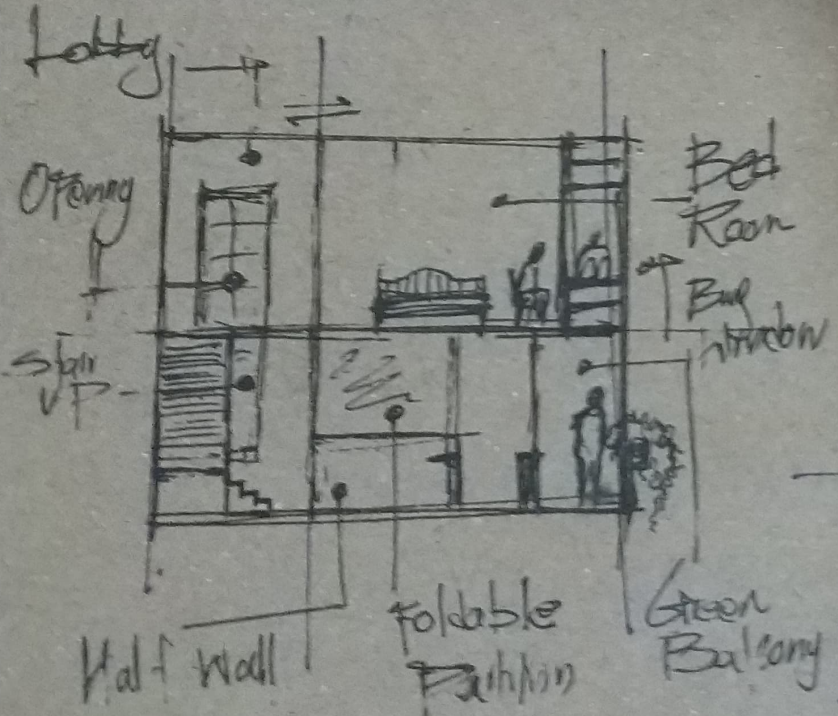 Lobby
Opening
Stair
UP
Bed
Room
Bay
window
Half wall
Foldable
Partition
Green
Balcony